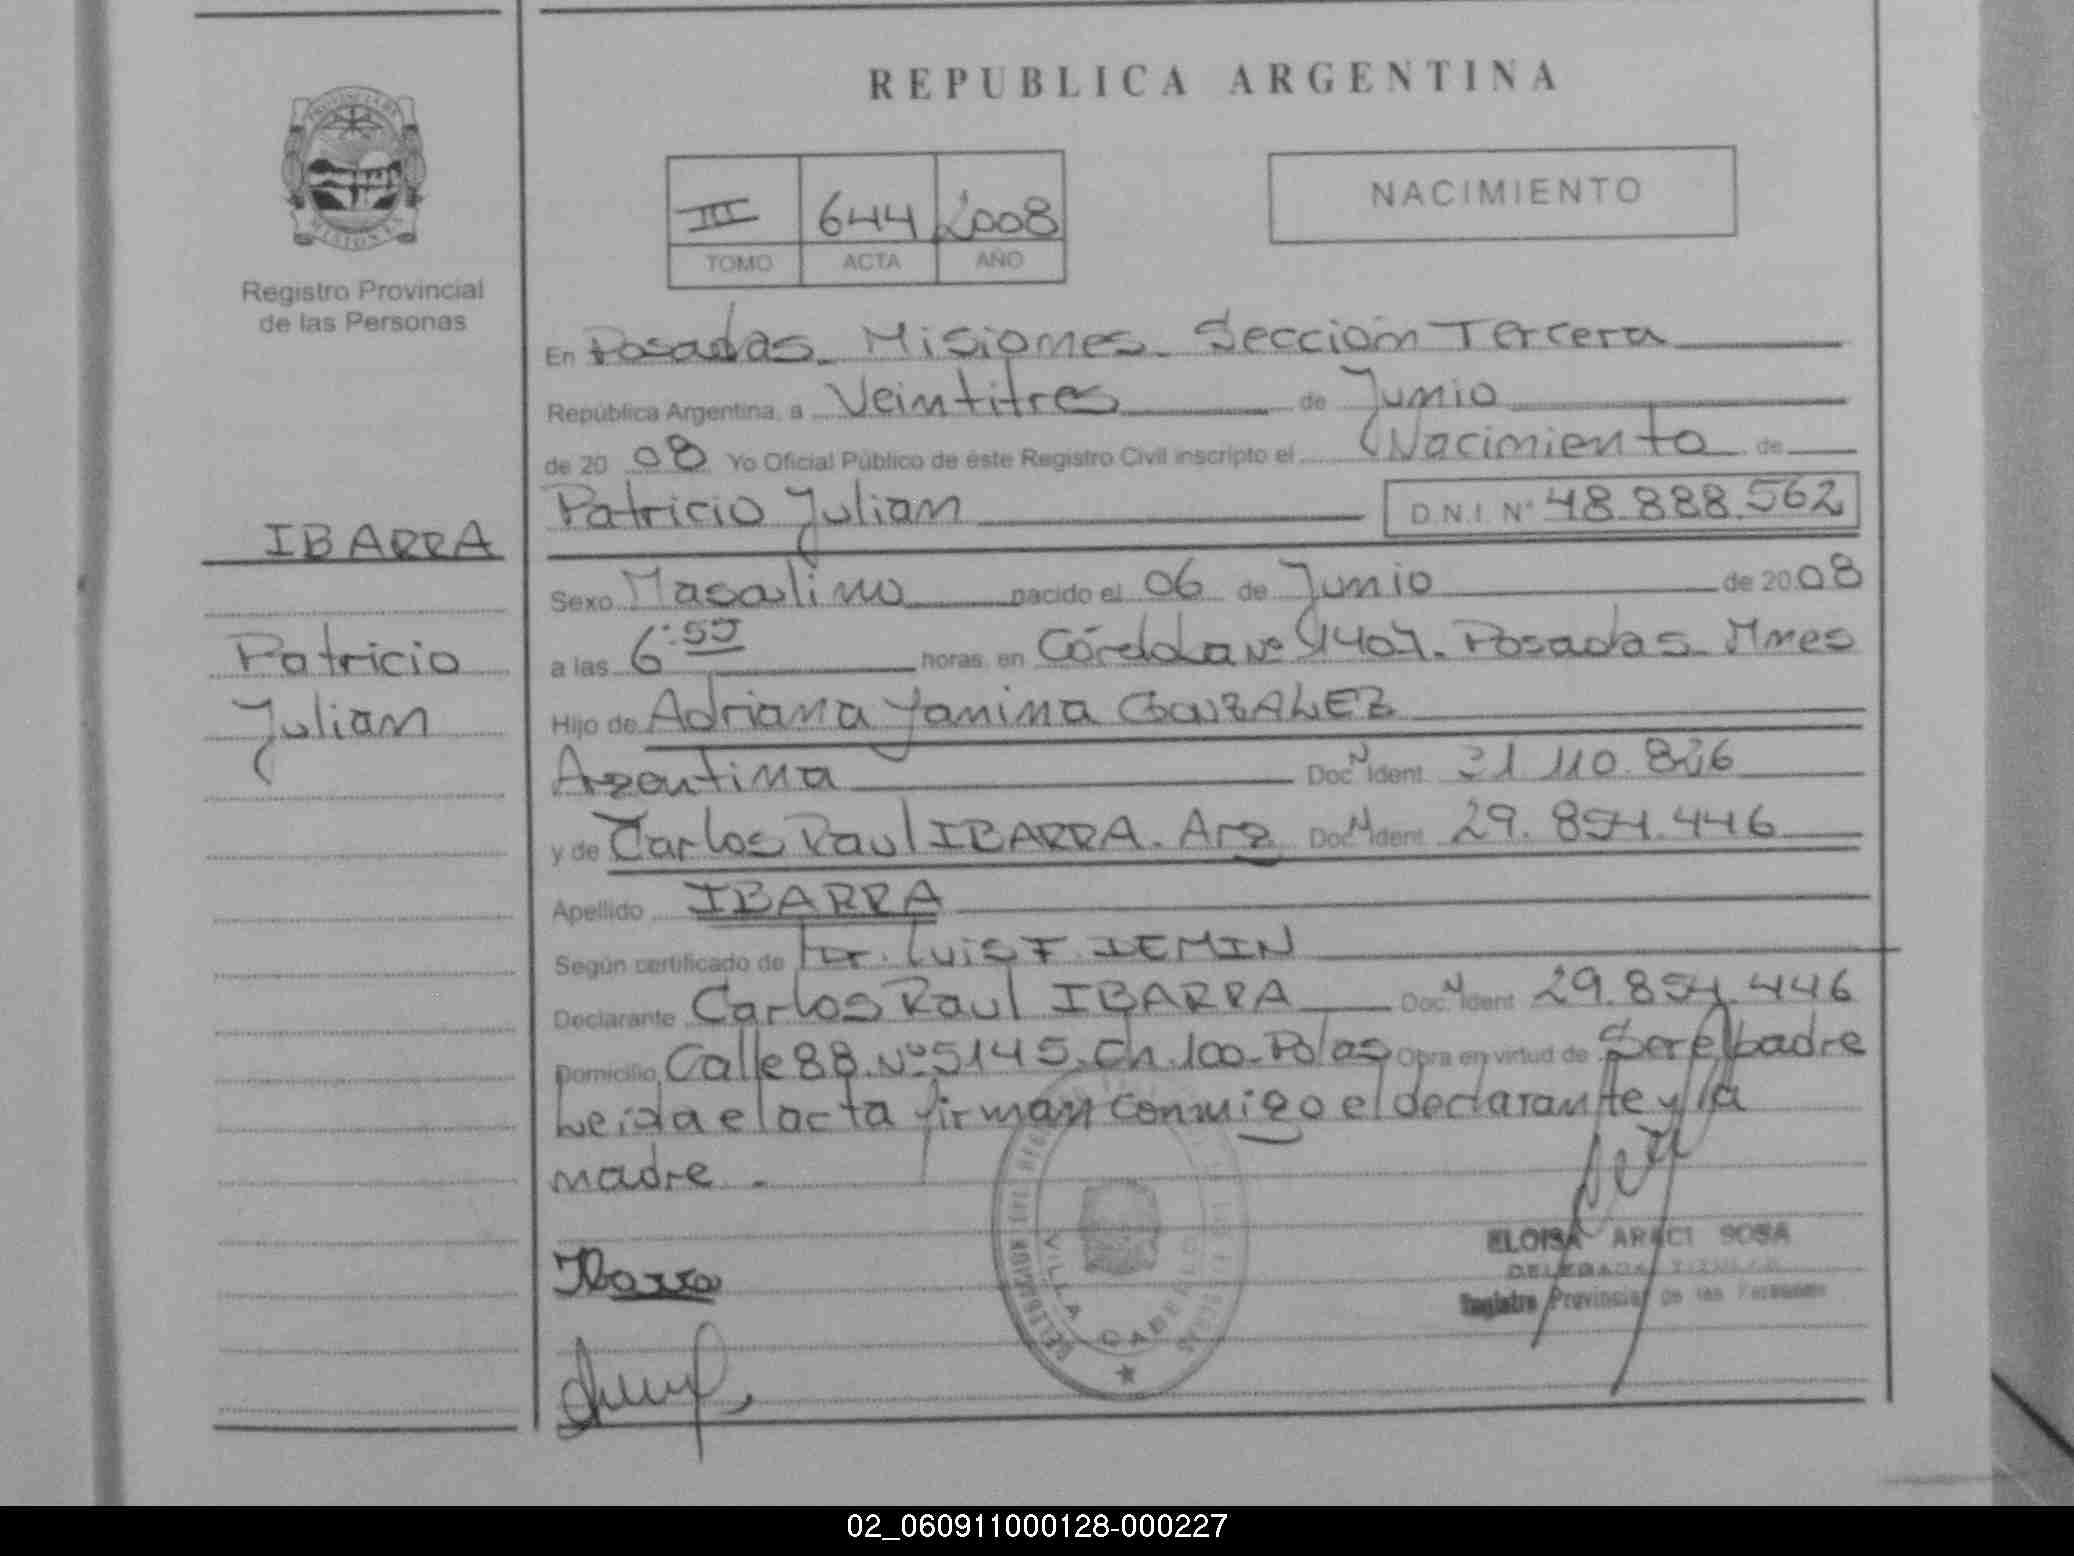 REPUBLICA ARGENTINA
PROVINCIA DE
MISIONES
Registro Provincial
de las Personas
III 644 2008
TOMO ACTA AÑO
NACIMIENTO
En Posadas. Misiones. Sección Tercera
República Argentina, a Veintitres de Junio
de 20 08 Yo Oficial Público de éste Registro Civil inscripto el Nacimiento de
Patricio Julian D.N.I. Nº 48.888.562
IBARRA
Patricio
Julian
Sexo Masculino nacido el 06 de Junio de 20 08
a las 6:55 horas, en Córdoba Nº 1407. Posadas. Mnes
Hijo de Adriana Yanina GONZALEZ
Argentina Doc N Ident 31.110.826
y de Carlos Raul IBARRA. Arg Doc N Ident 29.854.446
Apellido IBARRA
Según certificado de Dr. Luis F. IEMIN
Declarante Carlos Raul IBARRA Doc. N Ident 29.854.446
Domicilio Calle 88. Nº 5145. Ch. 100. Pdas Obra en virtud de Ser el padre
Leida el acta firman conmigo el declarante y la
madre.
Ibarra
VILLA CABELLO
ELOISA ARACI SOSA
DELEGADA TITULAR
Registro Provincial de las Personas
02_060911000128-000227